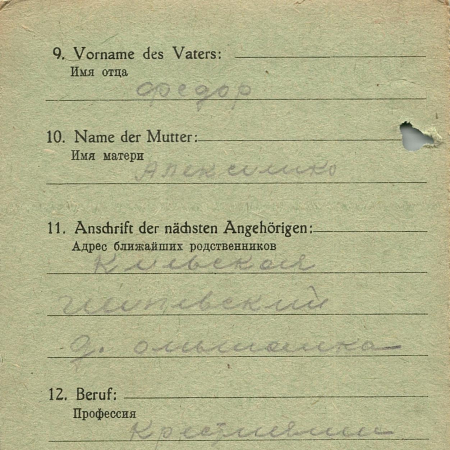 9. Vorname des Vaters:
Имя отца
Федор
10. Name der Mutter:
Имя матери
11. Anschrift der nächsten Angehörigen:
Адрес ближайших родственников
Киевской
д. ольшанка
12. Beruf:
Профессия